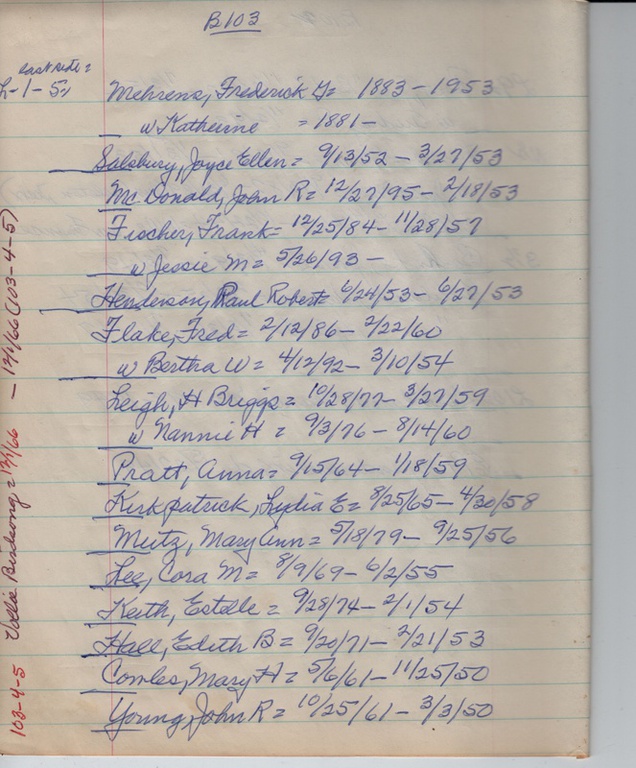 B103
east side =
L-1-5
Mehrens, Frederick G= 1883 - 1953
w Katherine = 1881 -
Salsbury, Joyce Ellen = 9/13/52 - 3/27/53
Mc Donald, John R = 12/27/95 - 2/18/53
Fischer, Frank = 12/25/84 - 11/28/57
w Jessie M = 5/26/93 -
Henderson, Paul Robert = 6/24/53 - 6/27/53
Flake, Fred = 2/12/86 - 2/22/60
w Bertha W = 4/12/92 - 3/10/54
Leigh, H Briggs = 10/28/77 - 3/27/59
w Nannie H = 9/3/76 - 8/14/60
Pratt, Anna = 9/15/64 - 1/18/59
Kirkpatrick, Lydia E = 8/25/65 - 4/30/58
Metz, Mary Ann = 5/18/79 - 9/25/56
Lee, Cora M = 8/9/69 - 6/2/55
Keith, Estelle = 9/28/74 - 2/1/54
Hall, Edith B = 9/20/71 - 2/21/53
Combs, Mary H = 5/6/61 - 11/25/50
Young, John R = 10/25/61 - 3/3/50
103-4-5 (103-4-5)